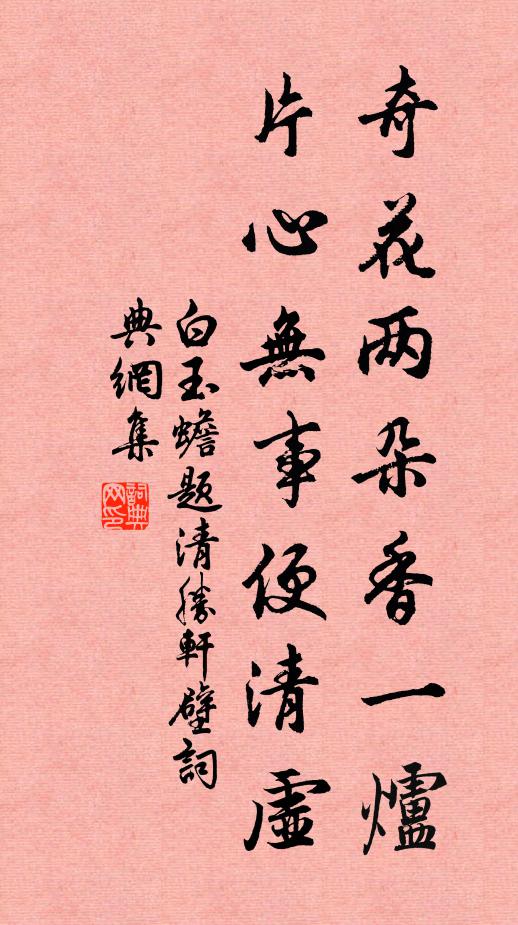 奇花两朵香一爐
片心無事便清虛
白玉蟾题清勝軒壁詞
典網集
詞典
网印